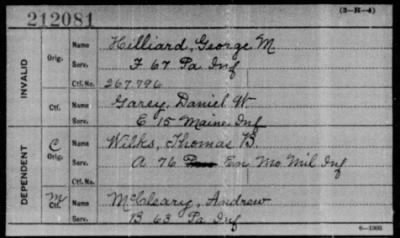 212081
(3-H-4)
INVALID
Orig.
Name Hilliard, George M
Serv. F 67 Pa Inf
Ctf. No. 267.796
Ctf.
Name Garey, Daniel W.
Serv. E 15 Maine Inf
DEPENDENT
C
Orig.
Name Wilks, Thomas B.
Serv. A 76 En Mo Mil Inf
Ctf. No.
M
Ctf.
Name McCleary, Andrew
Serv. B 63 Pa Inf